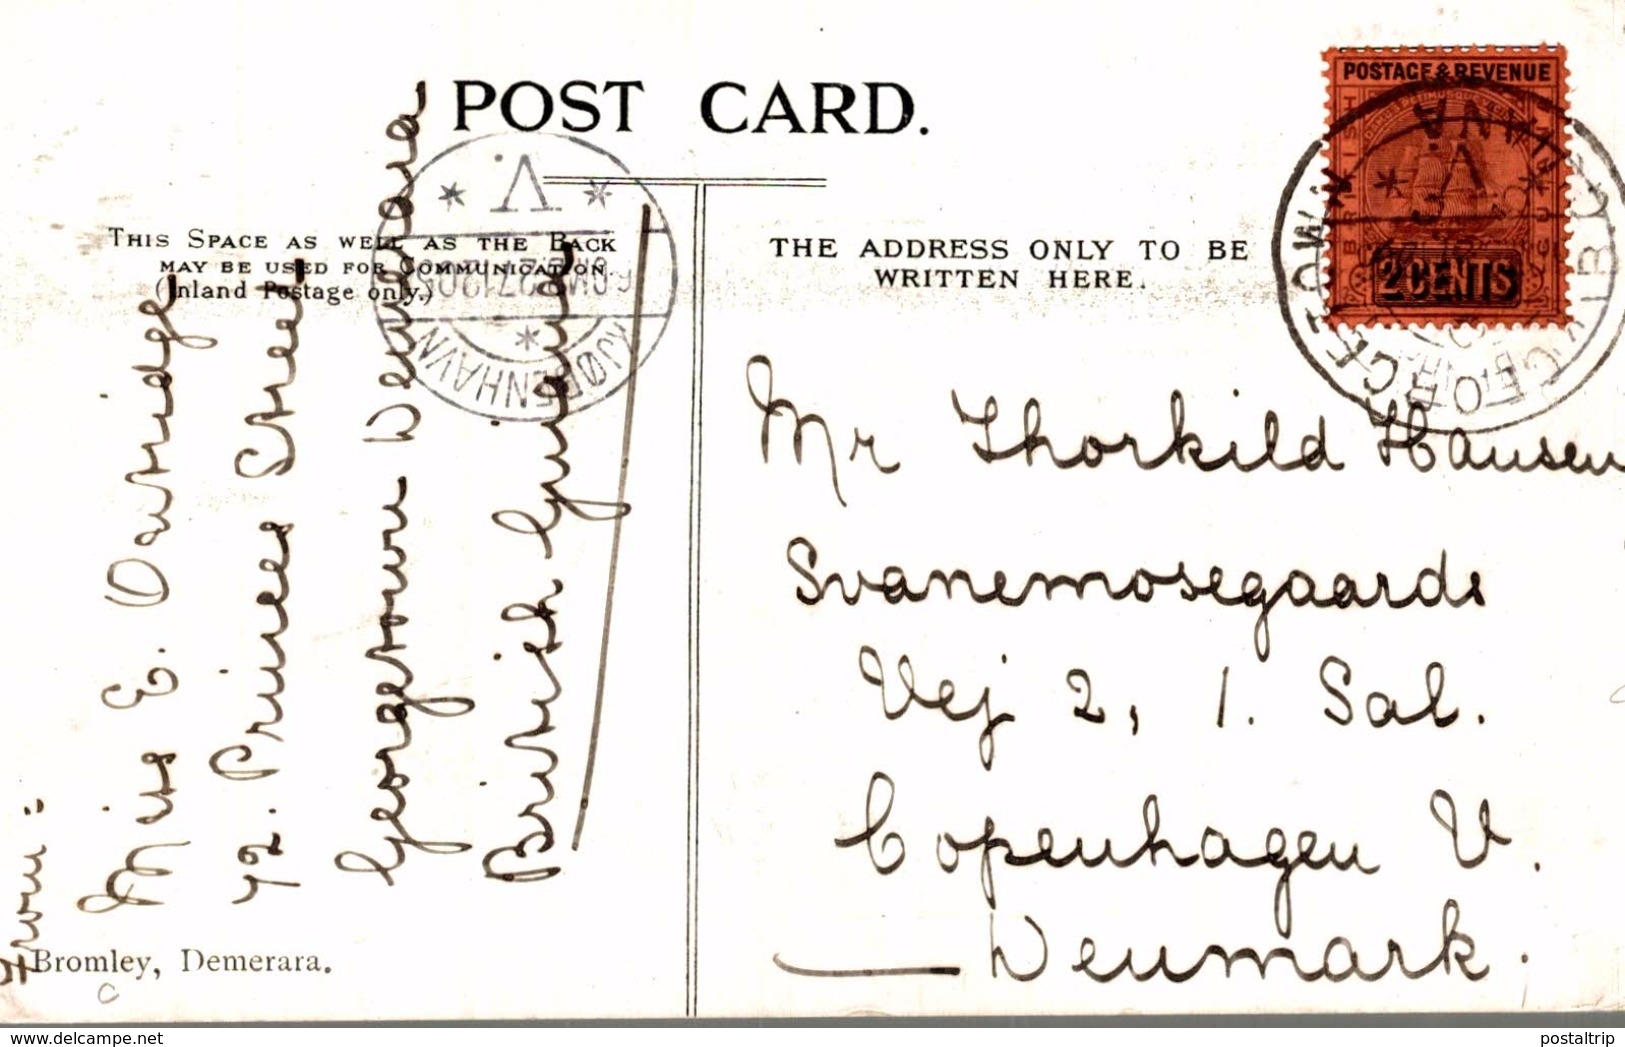 POST CARD.
THIS SPACE AS WELL AS THE BACK
MAY BE USED FOR COMMUNICATION.
(Inland Postage only.)
THE ADDRESS ONLY TO BE
WRITTEN HERE.
POSTAGE & REVENUE
BRITISH
2 CENTS
GEORGETOWN
KJØBENHAVN
V.
From:
Miss E. Oudridge
72. Princess Street
Georgetown Demerara
British Guiana
Mr Thorkild Hansen
Svanemosegaards
Vej 2, 1. Sal.
Copenhagen V.
Denmark.
Bromley, Demerara.
postaltrip